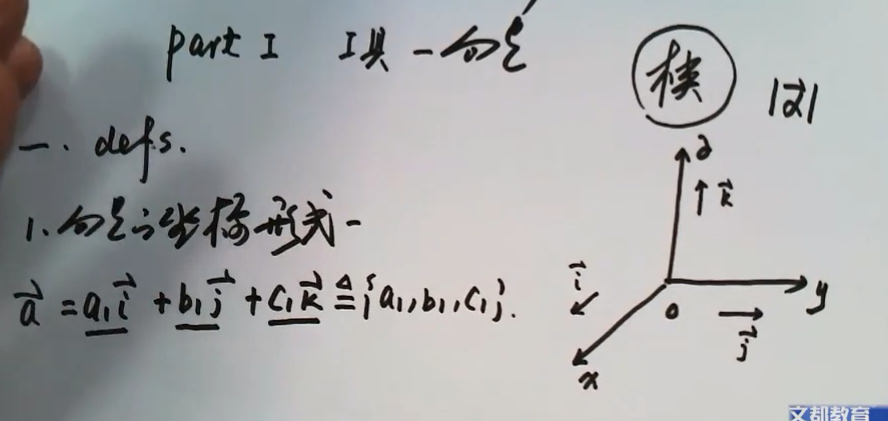 part I 工具-向量
模 |α⃗|
一. defs.
1. 向量的坐标形式-
a⃗ = a₁i⃗ + b₁j⃗ + c₁k⃗ ≜ {a₁, b₁, c₁}.
z
k⃗
i⃗
o
y
j⃗
x
文都教育